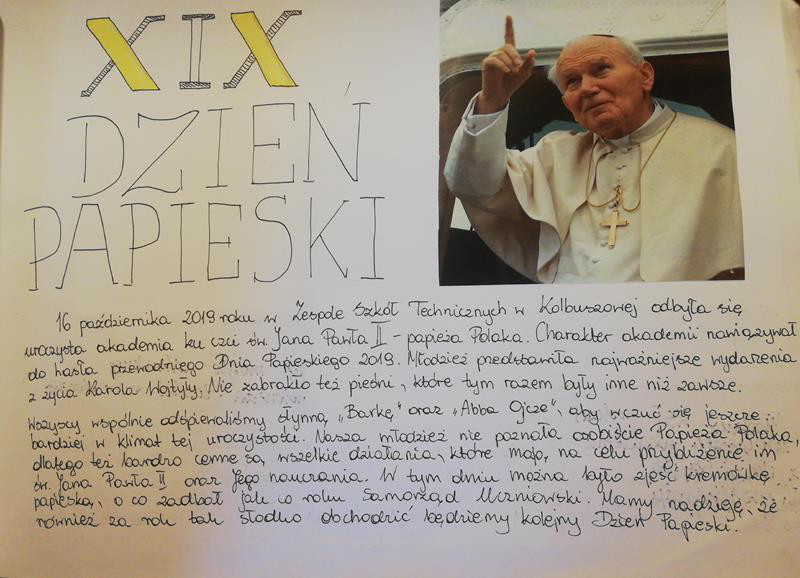 XIX
DZIEŃ
PAPIESKI
16 października 2019 roku w Zespole Szkół Technicznych w Kolbuszowej odbyła się
uroczysta akademia ku czci św. Jana Pawła II - papieża Polaka. Charakter akademii nawiązywał
do hasła przewodniego Dnia Papieskiego 2019. Młodzież przedstawiła najważniejsze wydarzenia
z życia Karola Wojtyły. Nie zabrakło też pieśni, które tym razem były inne niż zawsze.
Wszyscy wspólnie odśpiewaliśmy słynną „Barkę" oraz „Abba Ojcze", aby wczuć się jeszcze
bardziej w klimat tej uroczystości. Nasza młodzież nie poznała osobiście Papieża Polaka,
dlatego też bardzo cenne są wszelkie działania, które mają na celu przybliżenie im
św. Jana Pawła II oraz Jego nauczania. W tym dniu można było zjeść kremówkę
papieską, o co zadbał jak co roku Samorząd Uczniowski. Mamy nadzieję, że
również za rok tak słodko obchodzić będziemy kolejny Dzień Papieski.